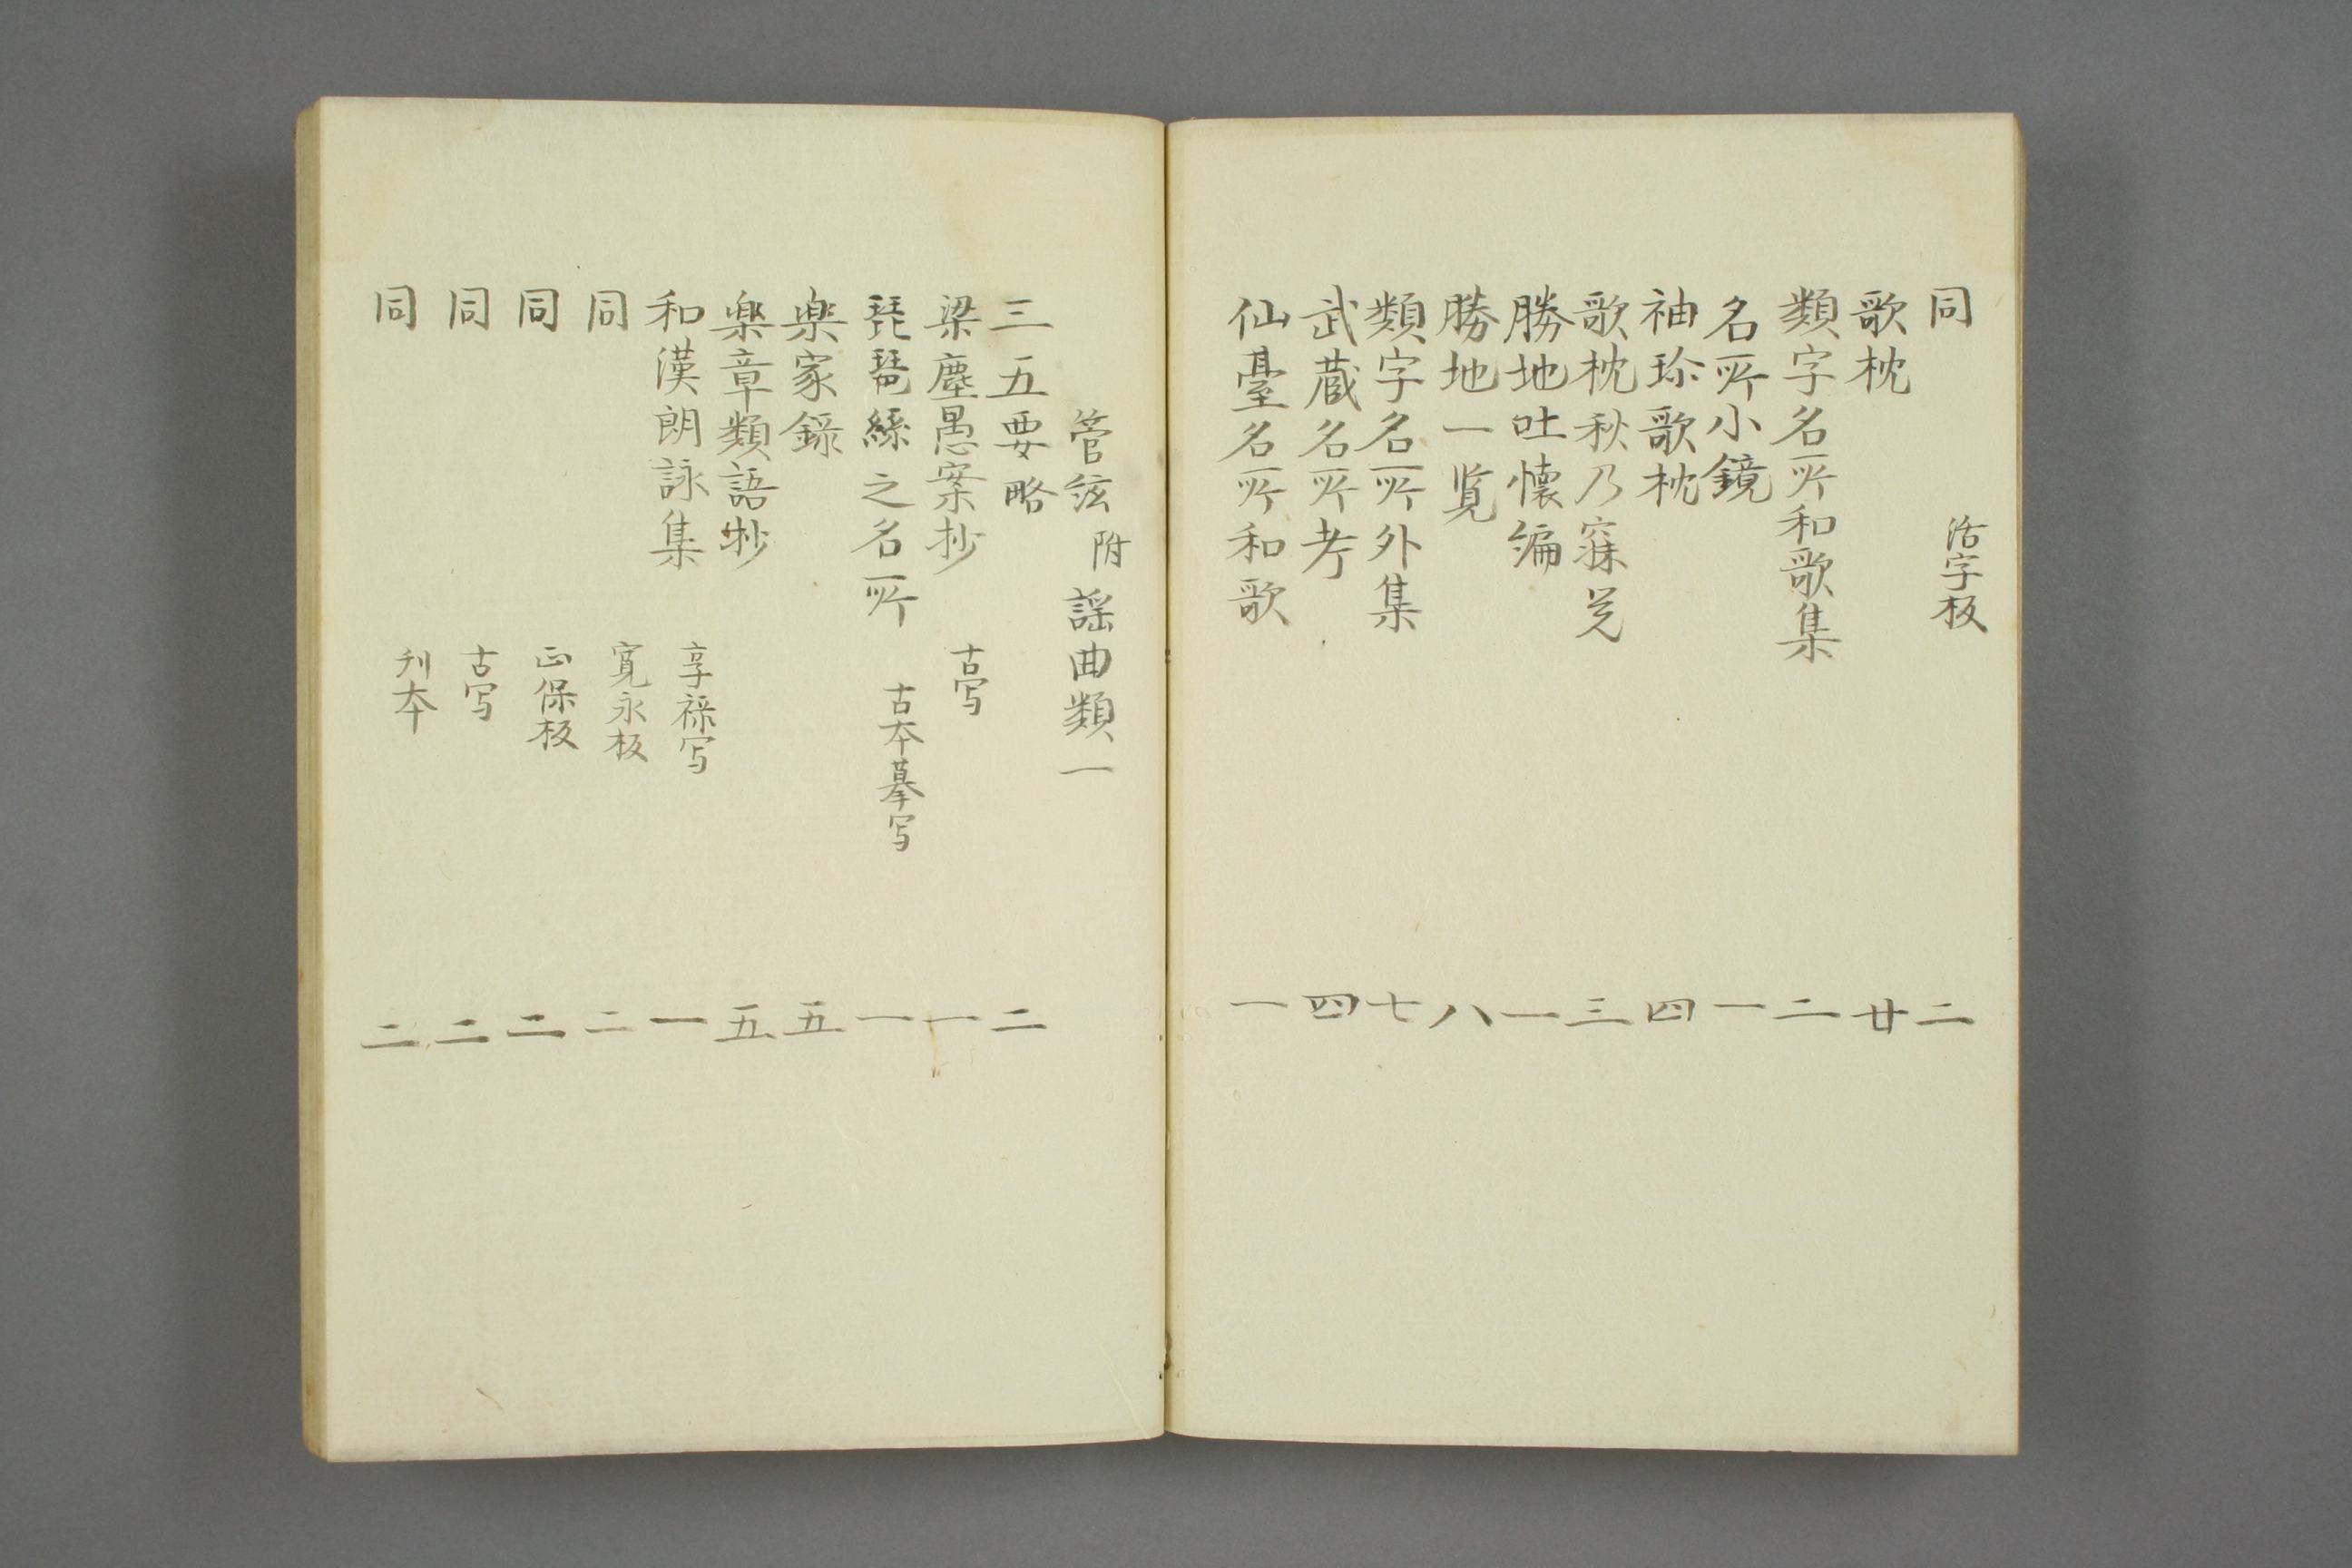 同 活字板 二
歌枕 廿
類字名所和歌集 二
名所小鏡 一
袖珍歌枕 四
歌枕秋乃寐覚 三
勝地吐懐編 一
勝地一覧 八
類字名所外集 七
武蔵名所考 四
仙臺名所和歌 一
管絃 附 謡曲類一
三五要略 二
梁塵愚案抄 古写 一
琵琶絲之名所 古本摹写 一
楽家録 五
楽章類語抄 五
和漢朗詠集 享禄写 一
同 寛永板 二
同 正保板 二
同 古写 二
同 刊本 二